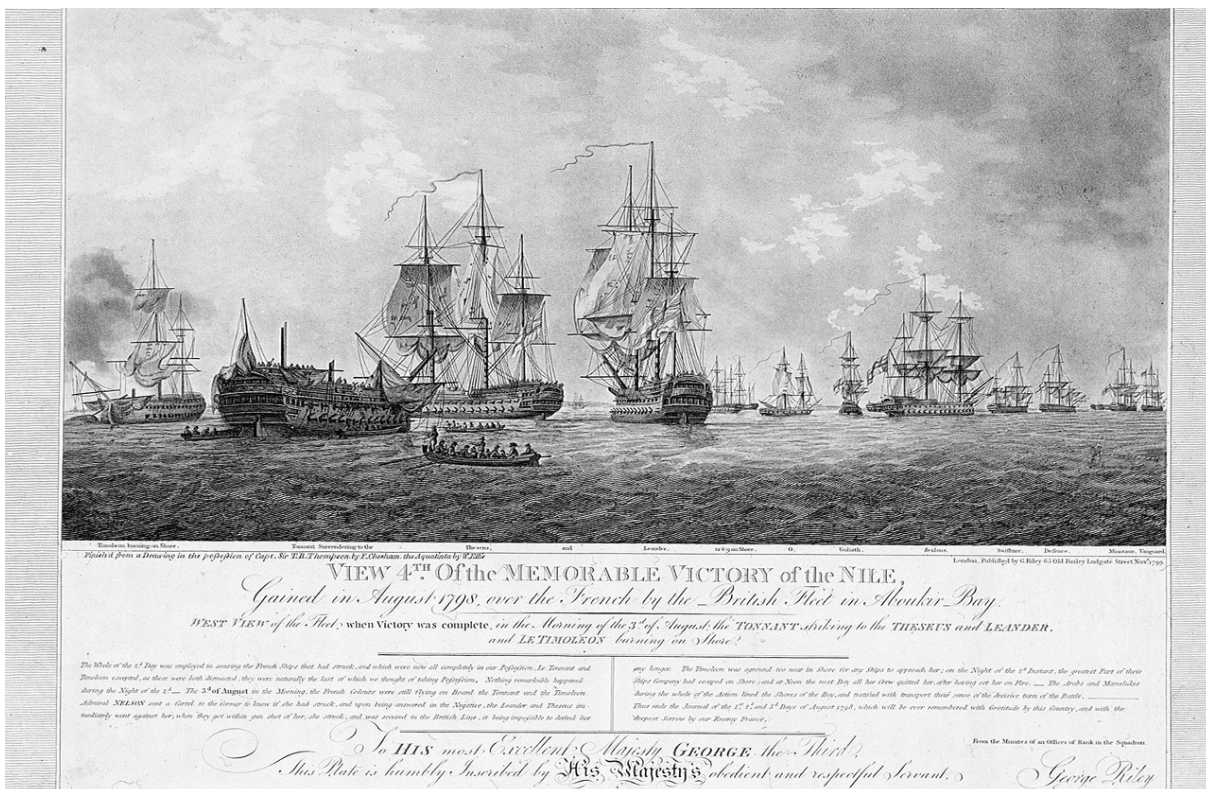 Timoleon burning on Shore. Tonnant Surrendering to the Theseus, and Leander. 12 & 9 on Shore. O, Goliath. Zealous. Swiftsure. Defence. Minotaur. Vanguard.
Finish'd from a Drawing in the possession of Capt. Sir T.B. Thompson; by F. Chesham. the Aquatinta by W. Ellis
London, Published by G. Riley 65 Old Bailey Ludgate Street Novr. 1799
VIEW 4TH Of the MEMORABLE VICTORY of the NILE,
Gained in August 1798, over the French by the British Fleet in Aboukir Bay.
WEST VIEW of the Fleet, when Victory was complete, in the Morning of the 3d. of August; the TONNANT striking to the THESEUS and LEANDER.
and LE TIMOLEON burning on Shore.
The Whole of the 2d. Day was employed in securing the French Ships that had struck, and which were now all completely in our Possession, Le Tonnant and
Timoleon excepted, as these were both dismasted, they were naturally the last of which we thought of taking Possession. Nothing remarkable happened
during the Night of the 2d. — The 3d of August in the Morning, the French Colours were still flying on Board the Tonnant and the Timoleon.
Admiral NELSON sent a Cartel to the former to know if she had struck, and upon being answered in the Negative, the Leander and Theseus im-
mediately went against her; when they got within gun shot of her, she struck, and was secured in the British Line, it being impossible to defend her
any longer. The Timoleon was aground too near in Shore for any Ships to approach her; on the Night of the 2d Instant, the greatest Part of their
Ships Company had escaped on Shore; and at Noon the next Day all her Crew quitted her, after having set her on Fire. — The Arabs and Mamelukes
during the whole of the Action lined the Shores of the Bay, and testified with transport their sense of the decisive turn of the Battle.
Thus ends the Journal of the 1st. 2d. and 3d. Days of August 1798, which will be ever remembered with Gratitude by this Country, and with the
deepest Sorrow by our Enemy France.
From the Minutes of an Officer of Rank in the Squadron.
To HIS most Excellent Majesty GEORGE the Third.
This Plate is humbly Inscribed by His Majesty's obedient and respectful Servant.
George Riley